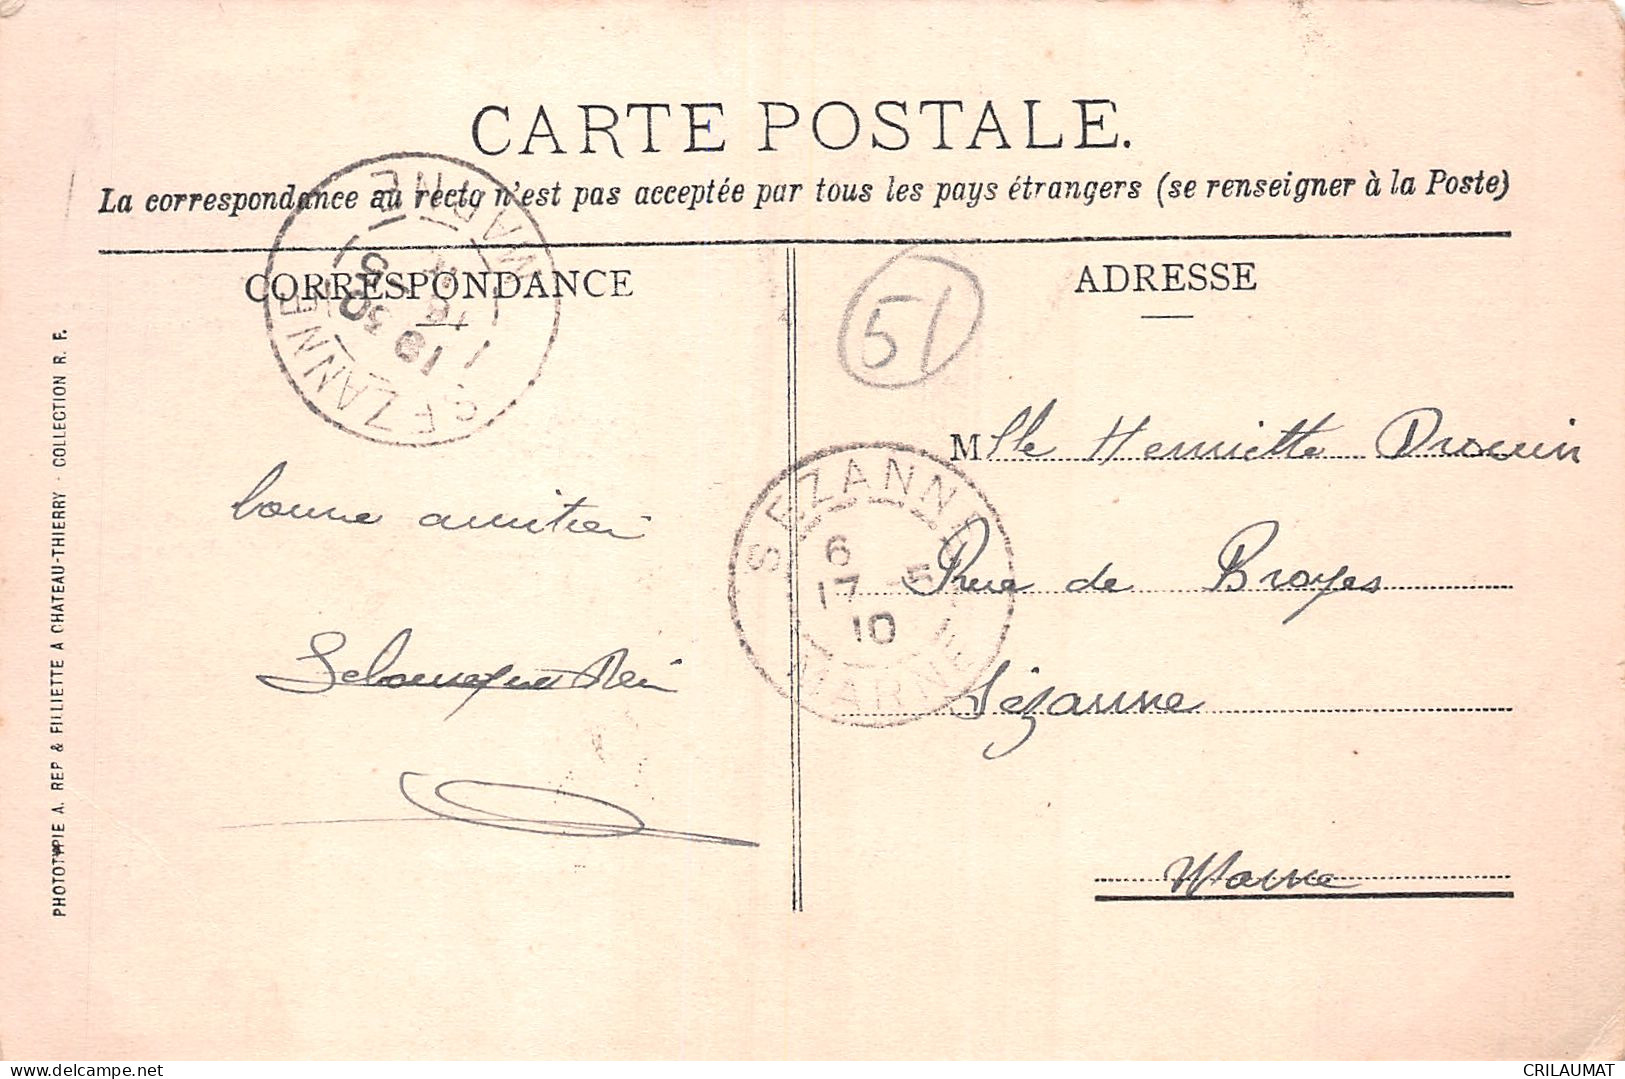 CARTE POSTALE.
La correspondance au recto n'est pas acceptée par tous les pays étrangers (se renseigner à la Poste)
CORRESPONDANCE
ADRESSE
51
SEZANNE
MARNE
Mlle Henriette Drouin
bonne amitié
SEZANNE
6
17 -5
10
MARNE
Rue de Broyes
Sézanne
Marne
PHOTOTYPIE A. REP & FILLIETTE A CHATEAU-THIERRY - COLLECTION R. F.
delcampe.net
CRILAUMAT